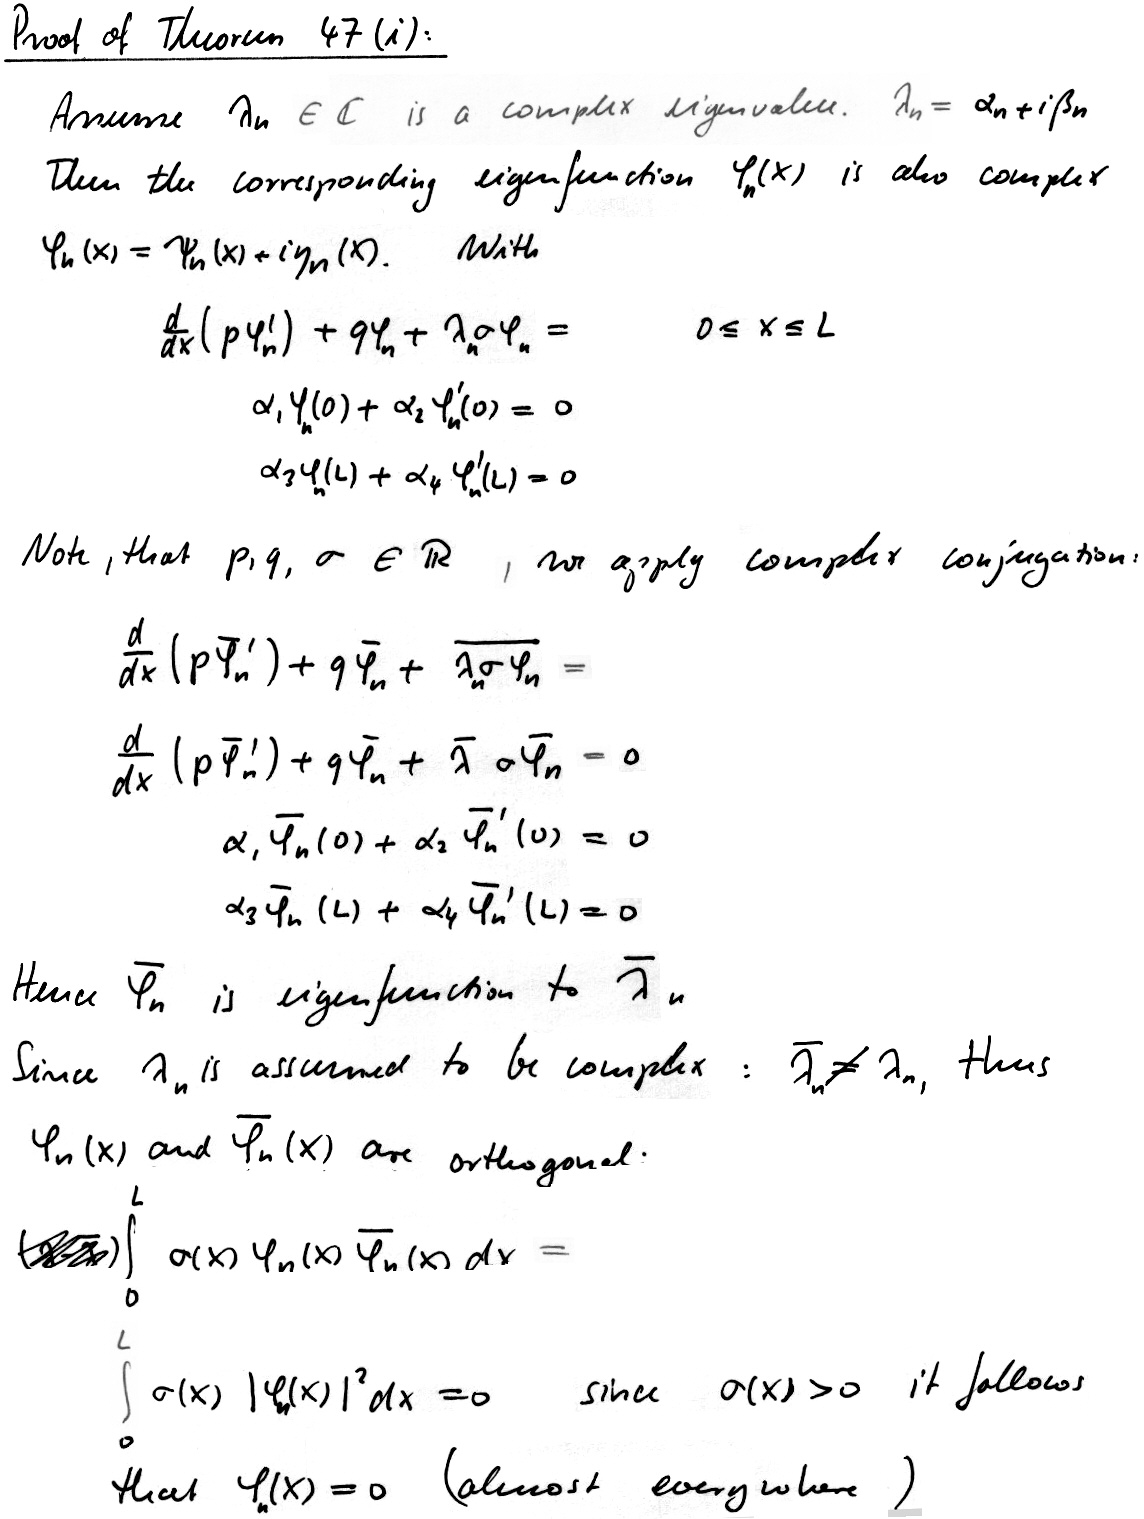 Proof of Theorem 47 (i):
Assume λₙ ∈ ℂ is a complex eigenvalue. λₙ = αₙ + iβₙ
Then the corresponding eigenfunction φₙ(x) is also complex
φₙ(x) = ψₙ(x) + iηₙ(x). With
d/dx (pφₙ') + qφₙ + λₙσφₙ = 0 ≤ x ≤ L
α₁φₙ(0) + α₂φₙ'(0) = 0
α₃φₙ(L) + α₄φₙ'(L) = 0
Note, that p, q, σ ∈ ℝ, we apply complex conjugation:
d/dx (pφ̄ₙ') + qφ̄ₙ + \overline{λₙσφₙ} =
d/dx (pφ̄ₙ') + qφ̄ₙ + λ̄ σφ̄ₙ = 0
α₁φ̄ₙ(0) + α₂φ̄ₙ'(0) = 0
α₃φ̄ₙ(L) + α₄φ̄ₙ'(L) = 0
Hence φ̄ₙ is eigenfunction to λ̄ₙ
Since λₙ is assumed to be complex : λ̄ₙ ≠ λₙ, thus
φₙ(x) and φ̄ₙ(x) are orthogonal.
∫₀ᴸ σ(x) φₙ(x) φ̄ₙ(x) dx =
∫₀ᴸ σ(x) |φₙ(x)|² dx = 0 since σ(x) > 0 it follows
that φₙ(x) = 0 (almost everywhere)